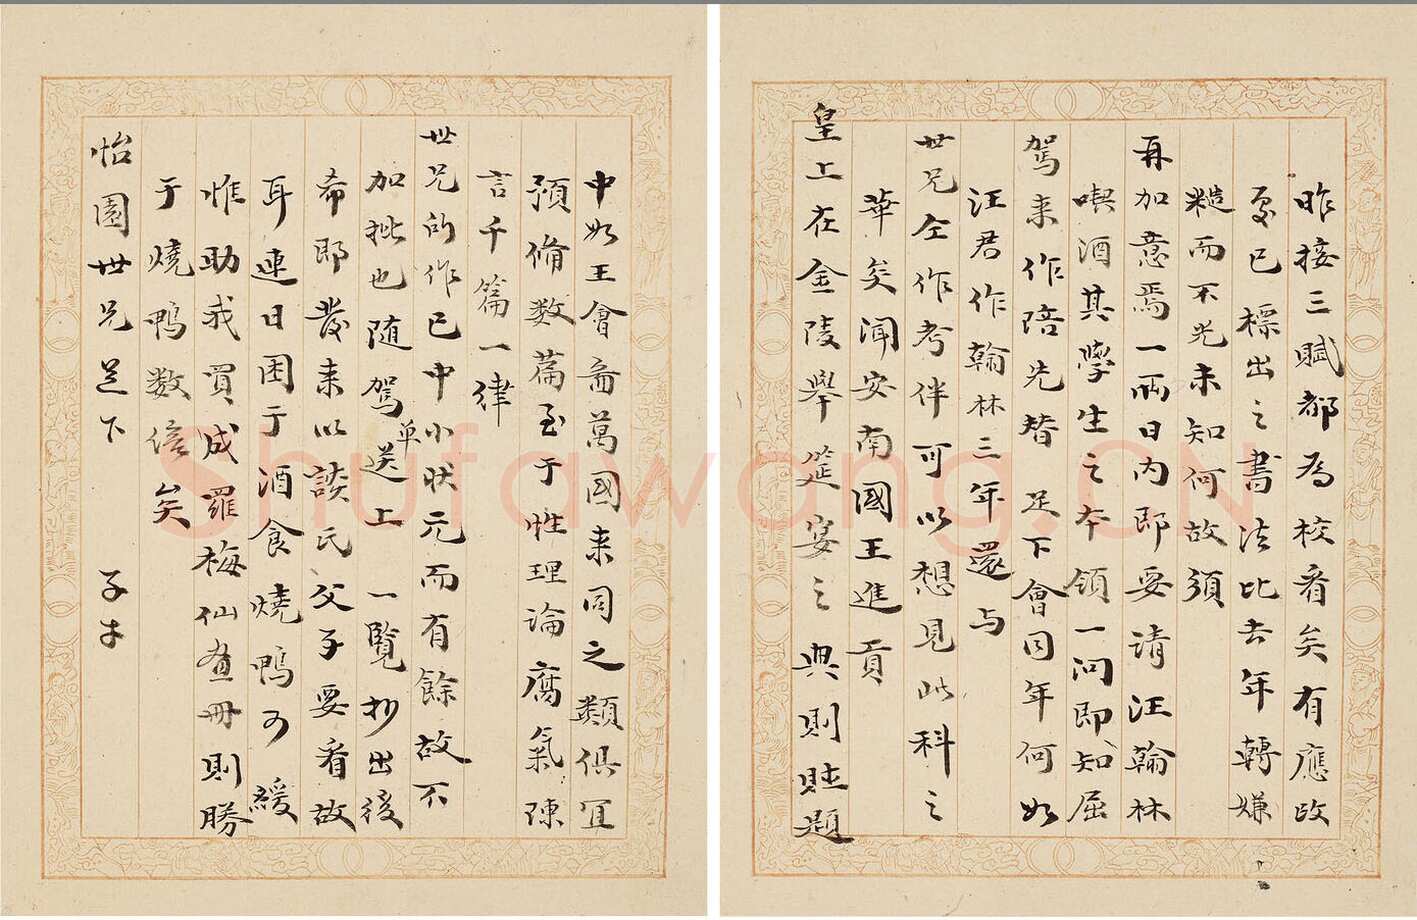 昨接三賦都為校看矣有應改
處已標出之書法比去年轉嫌
糙而不光未知何故須
再加意焉一兩日內即要請汪翰林
喫酒其學生之本領一問即知屈
駕來作陪先替足下會同年何如
汪君作翰林三年還与
世兄仝作考伴可以想見此科之
華矣闻安南國王進貢
皇上在金陵舉筵宴之典則賍題
中如王會圖萬國来同之類俱宜
預脩数篇至于性理論腐氣陳
言千篇一律
世兄所作已中小状元而有餘故不
加批也随駕單送上一覽抄出後
希即發来以談氏父子要看故
耳連日困于酒食燒鴨可緩
惟助我買成羅梅仙畫冊則勝
于燒鴨数倍矣
怡園世兄足下 子才
Shufawang.CN